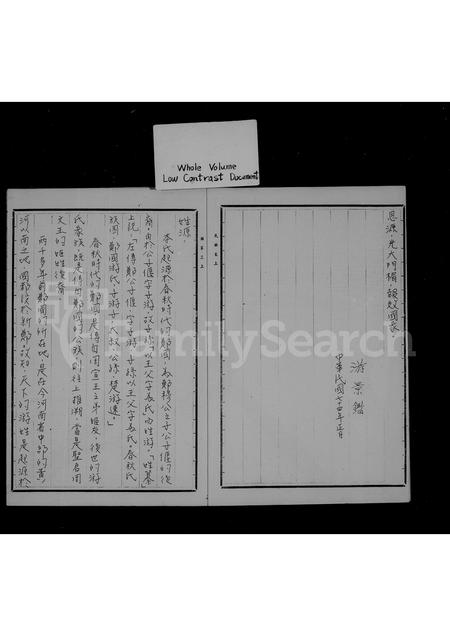 Whole Volume
Low Contrast Document
思源,光大門楣,報效國家
游景鑑
中華民國七十四年正月
姓源:
本氏起源於春秋時代的鄭國,為鄭穆公之子公子偃的後
裔,由於公子偃字子游,故子孫以王父字為氏而姓游,「姓纂」
上說,「左傳鄭公子偃字子游,子孫以王父字為氏,春秋氏
族圖鄭國游氏,子游,子大叔,公孫,楚游速。」
春秋時代的鄭國是傳自周宣王之弟姬友,後世的游
氏家族,既是傳自鄭國的公族,則往上推溯,當是聖君周
文王的姬姓後裔
兩千多年前鄭國的所在地,是在今河南省中部的黃
河以南之地,國都設於新鄭,故知,天下的游姓是起源於
FamilySearch